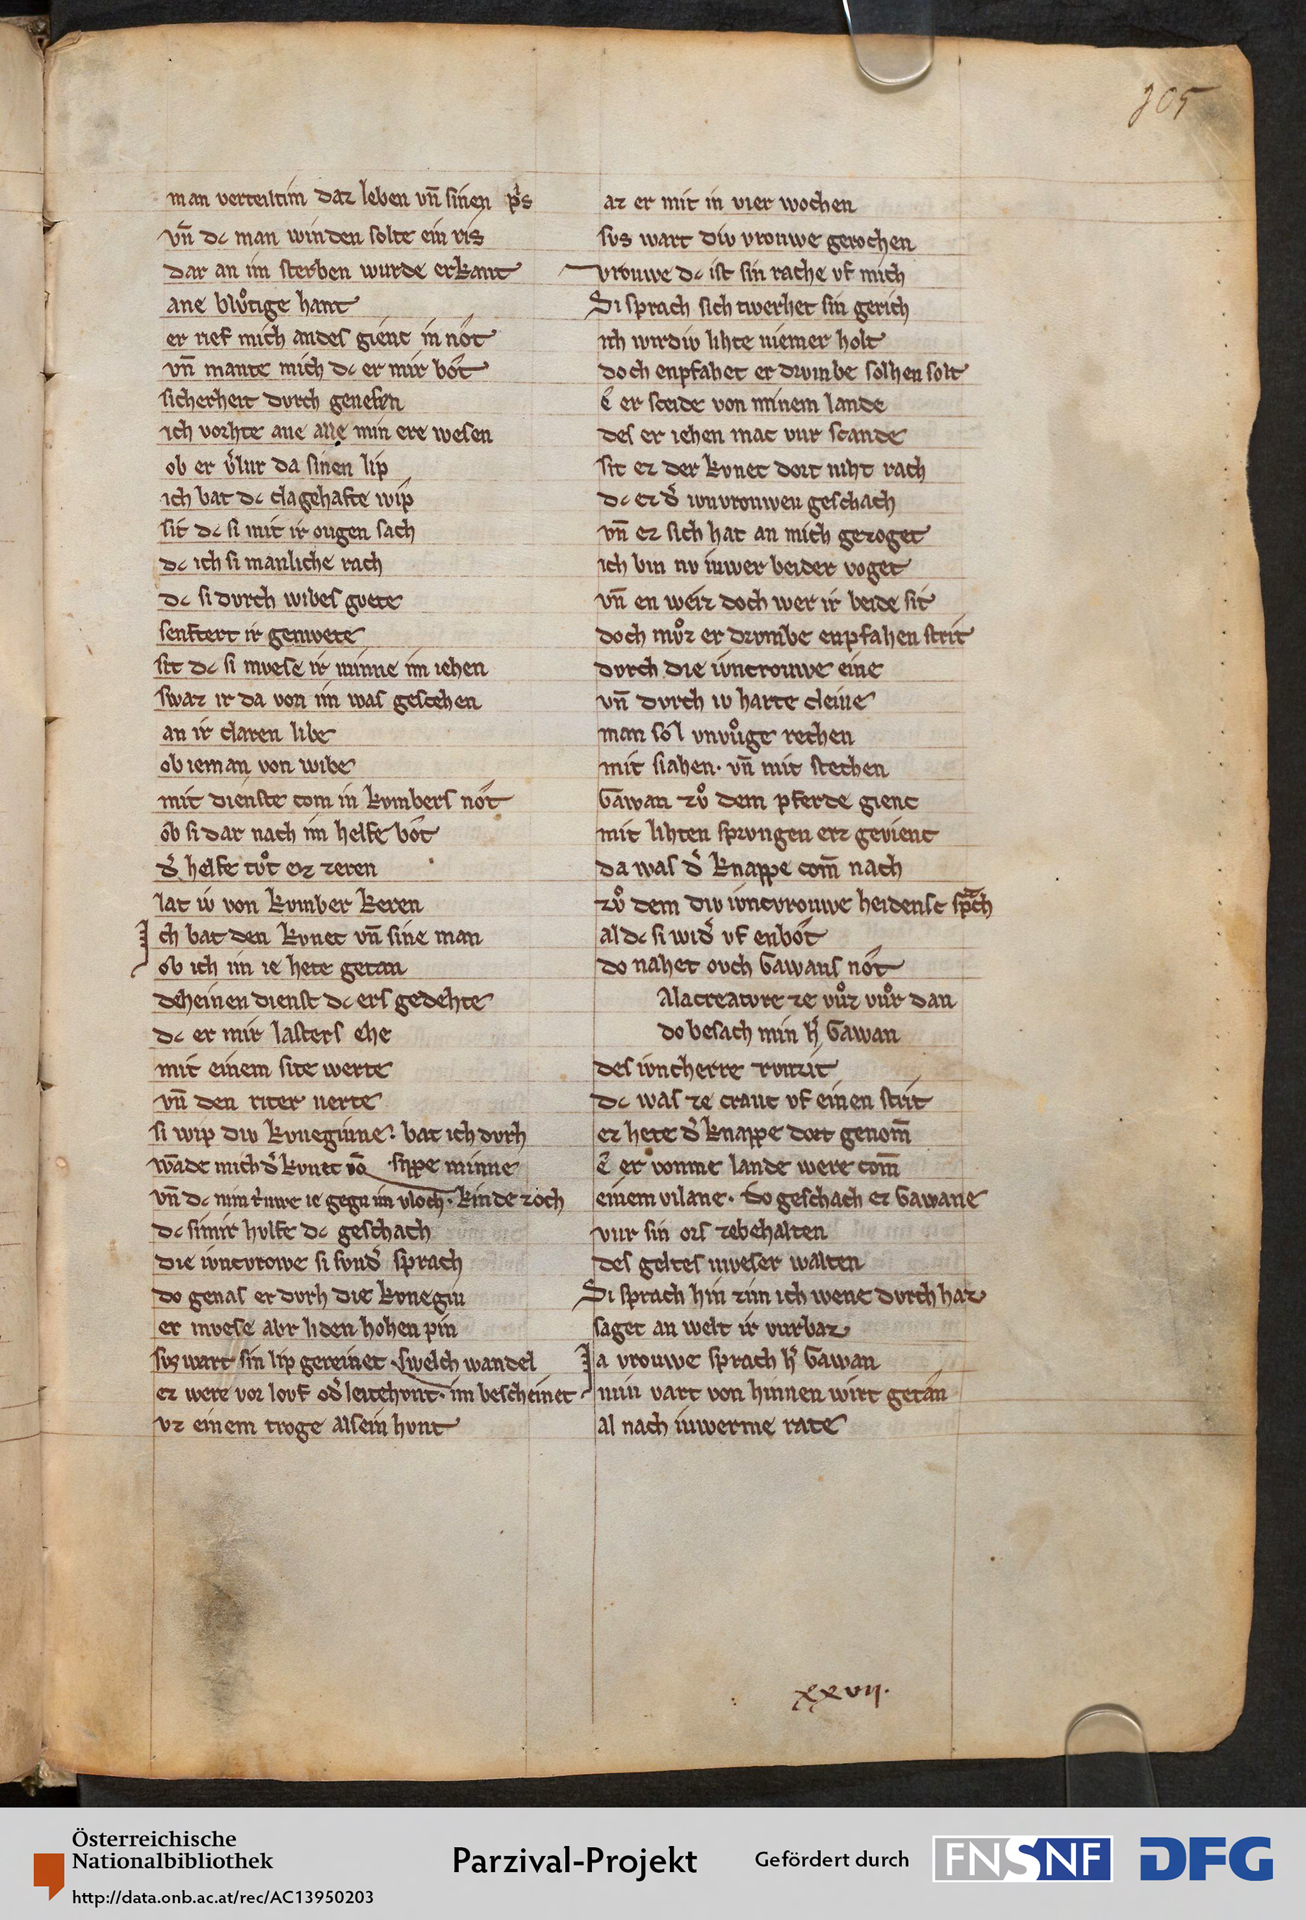 305
man verteiltim daz leben vn̄ sinen p̾s
vn̄ dc man winden solte ein ris
dar an im sterben wurde erkant
ane blv̊tige hant
er rief mich andes gienc in not
vn̄ mante mich dc er mir bot
sicherheit dvrch genesen
ich vorhte ane alle min ere wesen
ob er v̾lur da sinen lip
ich bat dc clagehafte wip
sit dc si mit ir ougen sach
dc ich si manliche rach
dc si dvrch wibes gvete
senftert ir gemvete
sit dc si mvese ir minne im iehen
swaz ir da von im was gescehen
an ir claren libe
ob ieman von wibe
mit dienste com in kvmbers not
ob si dar nach im helfe bot
d̾ helfe tv̊t ez zeren
lat iv̂ von kvmber keren
Ich bat den kvnec vn̄ sine man
ob ich im ie hete getan
deheinen dienst dc ers gedehte
dc er mir lasters ehe
mit einem site werte
vn̄ den riter nerte
si wip div kvneginne? bat ich dvrh
wāde mich d̾ kvnec vō sippe minne
vn̄ dc min t̾uwe ie gegn im vloch · kinde zoch
dc simir hvlfe dc geschach
die ivncvrowe si svnd̾ sprach
do genas er dvrh die kvnegin
er mvese abr liden hohen pin
svs wart sin lip gereinet · Swelch wandel
ez were vor louf od̾ leitehvnt · im bescheinet
vz einem troge alsein hvnt
az er mit in vier wochen
svs wart div vrouwe gerochen
vrouwe dc ist sin rache vf mich
Si sprach sich twerhet sin gerich
ich wirdiv lihte niemer holt
doch enpfahet er drvmbe solhen solt
E er sceide von minem lande
des er iehen mac vur scande
sit ez der kvnec dort niht rach
dc ez d̾ ivnvrouwen geschach
vn̄ ez sich hat an mich gezoget
ich bin nv iuwer beider voget
vn̄ en weiz doch wer ir beide sit
doch mv̊z er drvmbe enpfahen strit
dvrch die ivncrouwe eine
vn̄ dvrch iv harte cleine
man sol vnvv̊ge rechen
mit slahen · vn̄ mit stechen
Gawan zv̊ dem pferde gienc
mit lihten sprvngen erz gevienc
da was d̾ knappe com̄ nach
zv̊ dem div ivncvrouwe heidensc sp̾ch
al dc si wid̾ vf enbot
do nahet ovch Gawans not
Alacreatvre ze vv̊z vv̊r dan
do besach min h̾ Gawan
des ivncherre rvnzit
dc was ze cranc vf einen strit
ez hete d̾ knappe dort genom̄
E er vonme lande were com̄
einem vilane · do geschach ez Gawane
vur sin ors zebehalten
des geltes mveser walten
Si sprach hin zim ich wene dvrch haz
saget an welt ir vurbaz
Ia vrouwe sprach h̾ Gawan
min vart von hinnen wirt getan
al nach iuwerme rate
xxvii.
Österreichische
Nationalbibliothek
http://data.onb.ac.at/rec/AC13950203
Parzival-Projekt
Gefördert durch
FNSNF
DFG